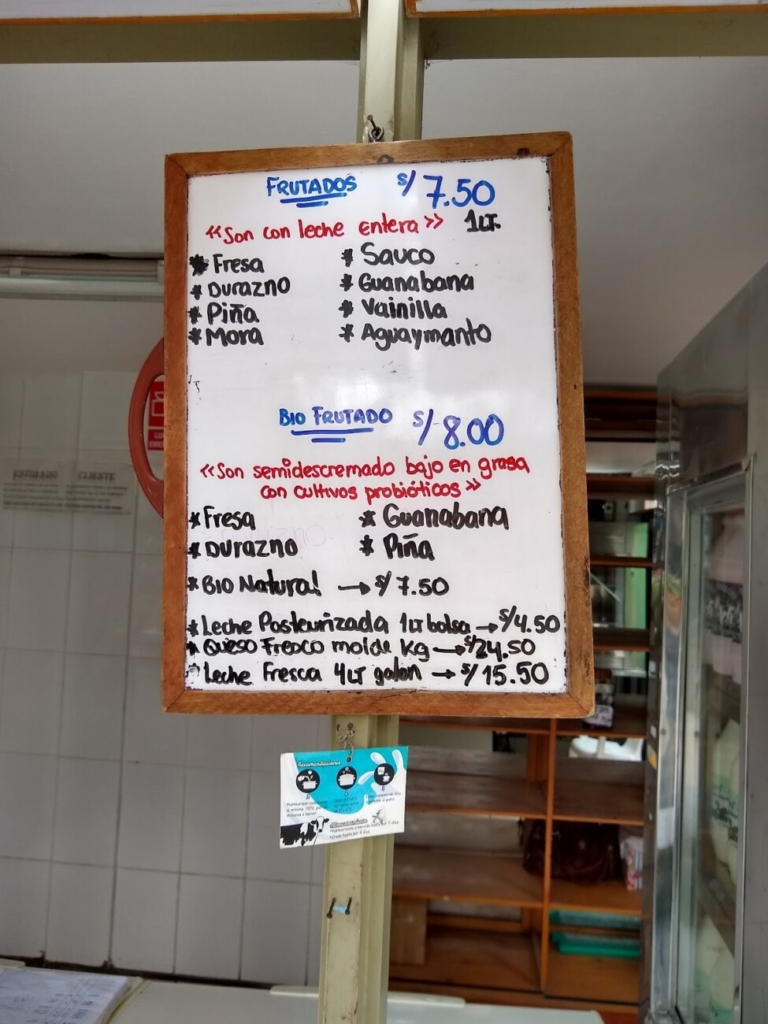 FRUTADOS S/ 7.50
«Son con leche entera» 1LT.
* Fresa
* DURAZNO
* Piña
* Mora
* Sauco
* Guanabana
* Vainilla
* Aguaymanto
BIO FRUTADO S/ 8.00
«Son semidescremado bajo en grasa
con cultivos probióticos»
* Fresa
* DURAZNO
* Guanabana
* Piña
* BIO Natural → S/ 7.50
* Leche Pasteurizada 1LT bolsa → S/ 4.50
* Queso Fresco molde kg → S/ 24.50
* Leche Fresca 4LT galon → S/ 15.50
Recomendaciones
CLIENTE